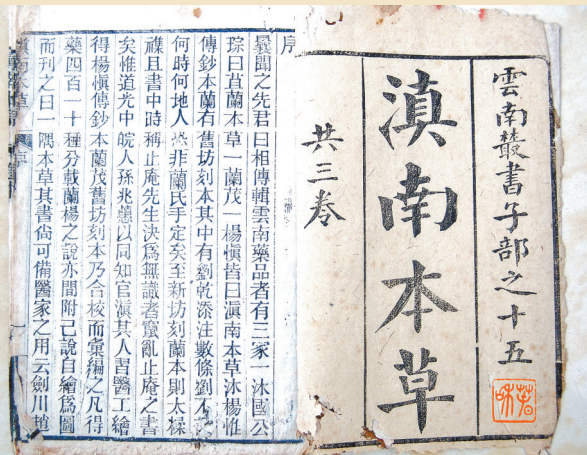 雲南叢書子部之十五
滇南本草
共三卷
序
曩聞之先君曰相傳輯雲南藥品者有三家一沐國公
琮曰苴蘭本草一蘭茂一楊愼皆曰滇南本草沐楊惟
傳鈔本蘭有舊坊刻本其中有劉乾添注數條劉不
何時何地人恐非蘭氏手定矣至新坊刻蘭本則太糅
襍且書中時稱止庵先生決爲無識者竄亂止庵之書
矣惟道光中皖人孫兆蕙以同知官滇其人習醫工繪
得楊愼傳鈔本蘭茂舊坊刻本乃合校而彙編之凡得
藥四百一十種分載蘭楊之說亦間附己說自繪爲圖
而刊之曰一隅本草其書尙可備醫家之用云劍川趙